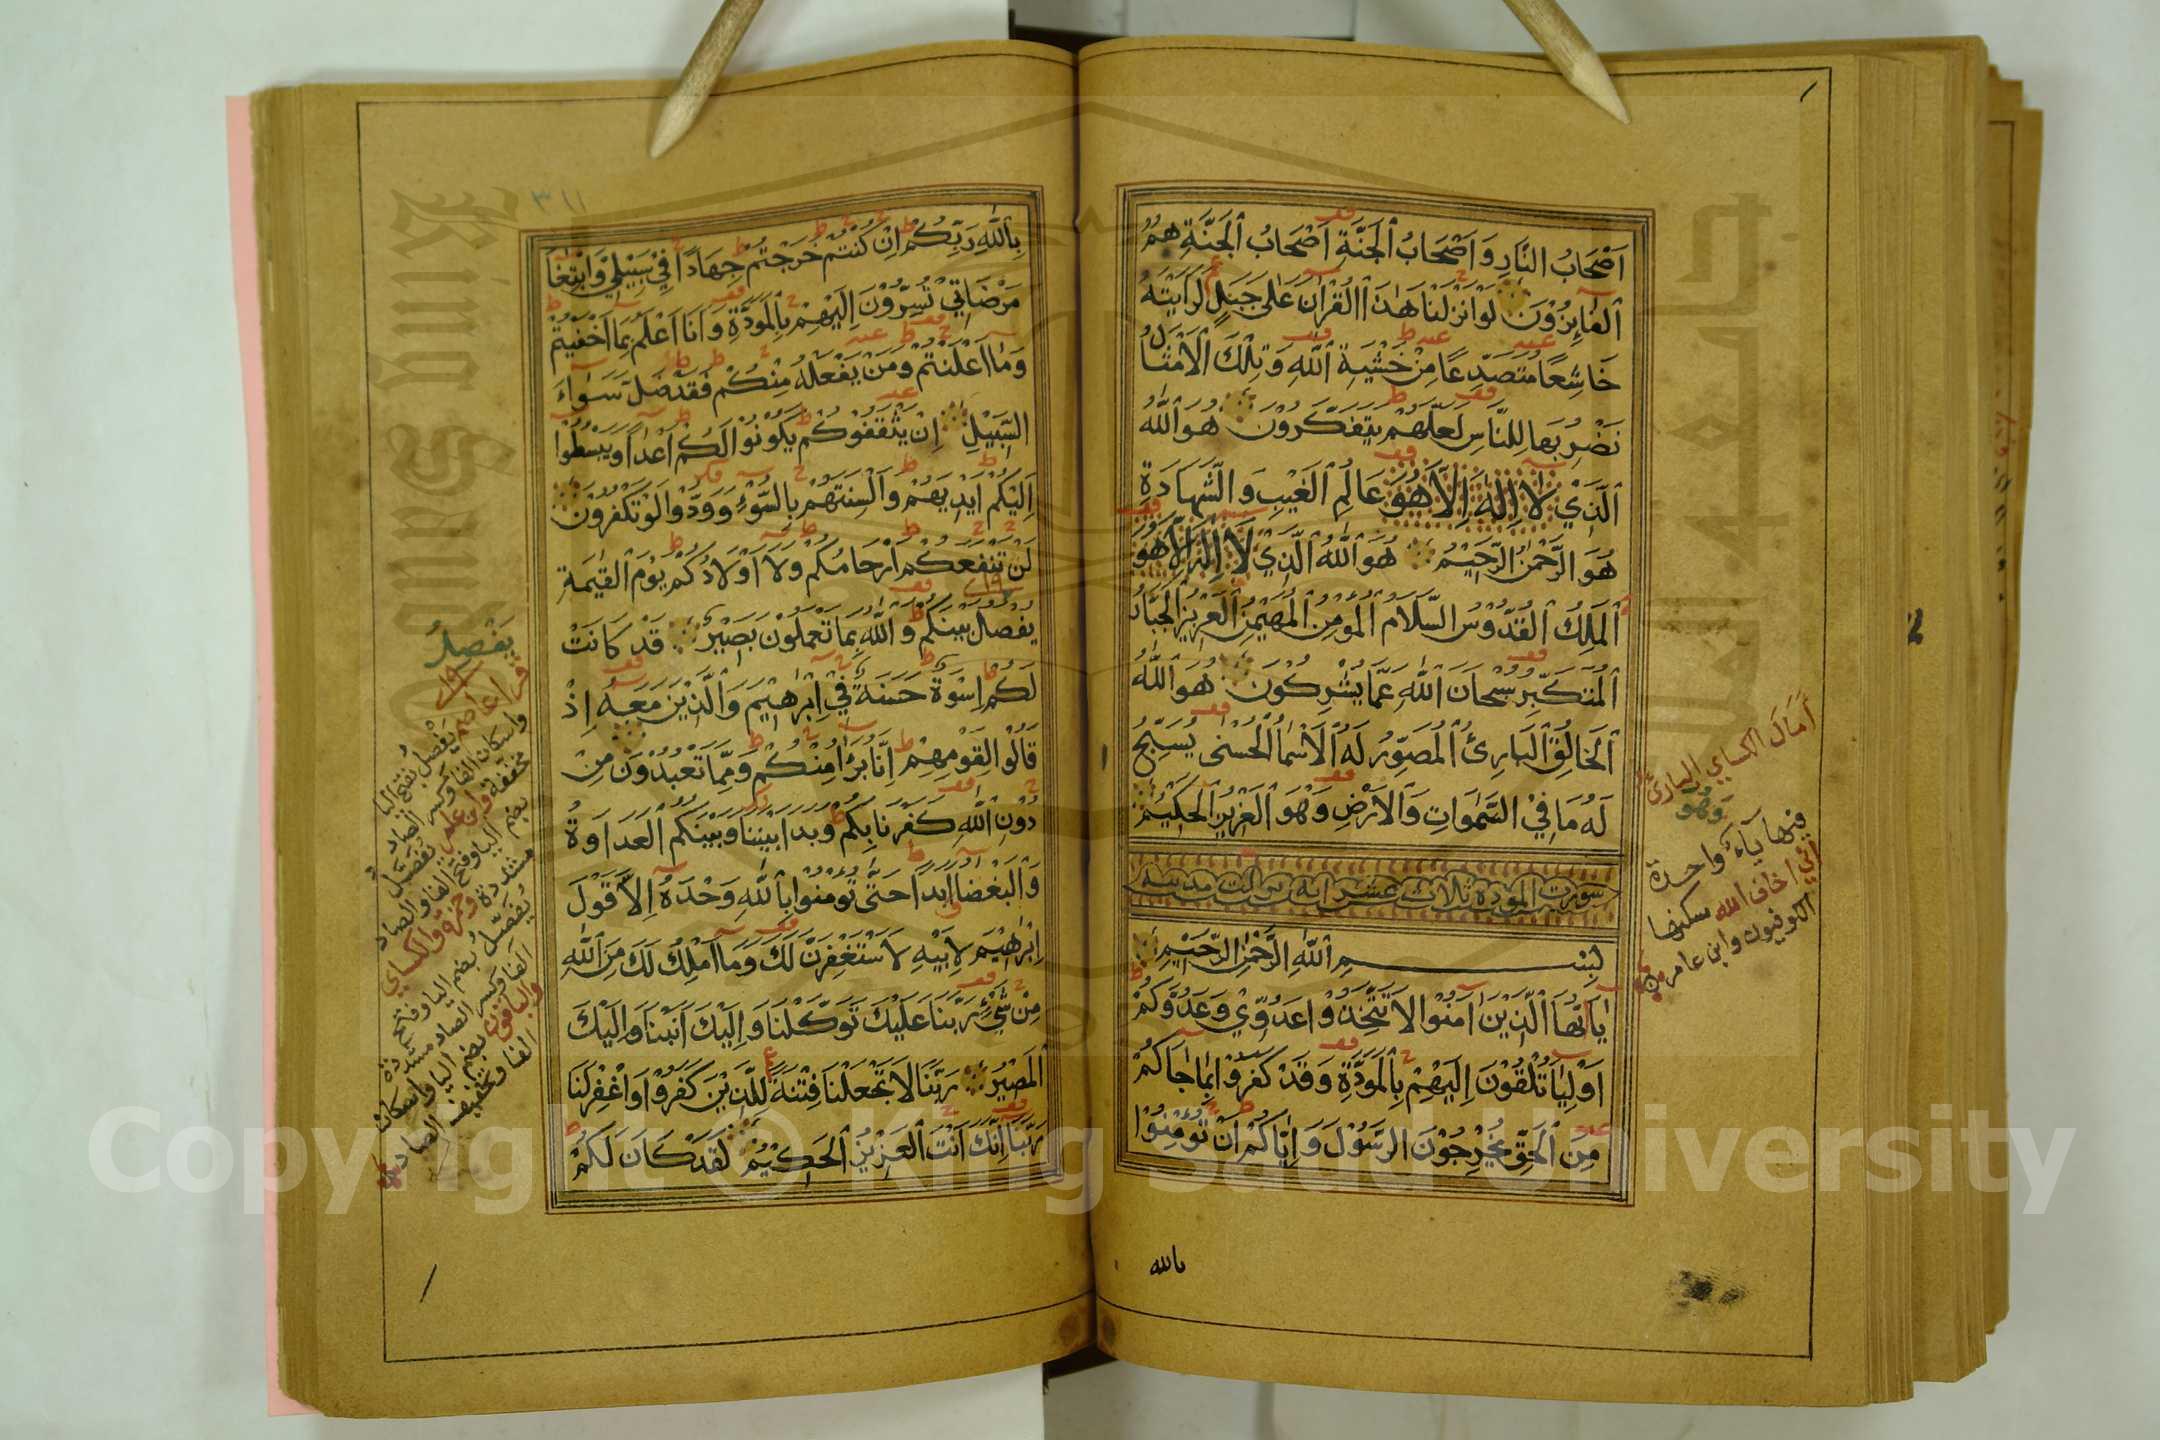 اَصْحَابُ النَّارِ وَاَصْحَابُ الْجَنَّةِ اَصْحَابُ الْجَنَّةِ هُمُ
الْفَائِزُوْنَ لَوْ اَنْزَلْنَا هٰذَا الْقُرْاٰنَ عَلٰى جَبَلٍ لَرَاَيْتَهُ
خَاشِعًا مُتَصَدِّعًا مِنْ خَشْيَةِ اللّٰهِ وَتِلْكَ الْاَمْثَالُ
نَضْرِبُهَا لِلنَّاسِ لَعَلَّهُمْ يَتَفَكَّرُوْنَ هُوَ اللّٰهُ
الَّذِيْ لَا اِلٰهَ اِلَّا هُوَ عَالِمُ الْغَيْبِ وَالشَّهَادَةِ
هُوَ الرَّحْمٰنُ الرَّحِيْمُ هُوَ اللّٰهُ الَّذِيْ لَا اِلٰهَ اِلَّا هُوَ
الْمَلِكُ الْقُدُّوْسُ السَّلَامُ الْمُؤْمِنُ الْمُهَيْمِنُ الْعَزِيْزُ الْجَبَّارُ
الْمُتَكَبِّرُ سُبْحَانَ اللّٰهِ عَمَّا يُشْرِكُوْنَ هُوَ اللّٰهُ
الْخَالِقُ الْبَارِئُ الْمُصَوِّرُ لَهُ الْاَسْمَا الْحُسْنٰى يُسَبِّحُ
لَهُ مَا فِيْ السَّمٰوَاتِ وَالْاَرْضِ وَهُوَ الْعَزِيْزُ الْحَكِيْمُ
سورت المودة ثلاث عشر اية نزلت مدينة
بِسْمِ اللّٰهِ الرَّحْمٰنِ الرَّحِيْمِ
يٰاَيُّهَا الَّذِيْنَ اٰمَنُوْا لَا تَتَّخِذُوْا عَدُوِّيْ وَعَدُوَّكُمْ
اَوْلِيَا تُلْقُوْنَ اِلَيْهِمْ بِالْمَوَدَّةِ وَقَدْ كَفَرُوْا بِمَا جَاكُمْ
مِنَ الْحَقِّ يُخْرِجُوْنَ الرَّسُوْلَ وَاِيَّاكُمْ اَنْ تُؤْمِنُوْا
بالله
اَمَالَ الكساي البارئ
وَهُوَ
فيها ياءٌ واحدة
اِنِّي اخاف الله سكنها
الكوفيون وابن عامر
٣١١
بِاللّٰهِ رَبِّكُمْ اِنْ كُنْتُمْ خَرَجْتُمْ جِهَادًا فِيْ سَبِيْلِيْ وَابْتِغَا
مَرْضَاتِيْ تُسِرُّوْنَ اِلَيْهِمْ بِالْمَوَدَّةِ وَاَنَا اَعْلَمُ بِمَا اَخْفَيْتُمْ
وَمَا اَعْلَنْتُمْ وَمَنْ يَفْعَلْهُ مِنْكُمْ فَقَدْ ضَلَّ سَوَاءَ
السَّبِيْلِ اِنْ يَثْقَفُوْكُمْ يَكُوْنُوْا لَكُمْ اَعْدَا وَيَبْسُطُوْا
اِلَيْكُمْ اَيْدِيَهُمْ وَاَلْسِنَتَهُمْ بِالسُّوْءِ وَوَدُّوْا لَوْ تَكْفُرُوْنَ
لَنْ تَنْفَعَكُمْ اَرْحَامُكُمْ وَلَا اَوْلَادُكُمْ يَوْمَ الْقِيٰمَةِ
يَفْصِلُ بَيْنَكُمْ وَاللّٰهُ بِمَا تَعْمَلُوْنَ بَصِيْرٌ قَدْ كَانَتْ
لَكُمْ اِسْوَةٌ حَسَنَةٌ فِيْ اِبْرٰهِيْمَ وَالَّذِيْنَ مَعَهُ اِذْ
قَالُوْا لِقَوْمِهِمْ اِنَّا بُرَءٰؤُا مِنْكُمْ وَمِمَّا تَعْبُدُوْنَ مِنْ
دُوْنِ اللّٰهِ كَفَرْنَا بِكُمْ وَبَدَا بَيْنَنَا وَبَيْنَكُمُ الْعَدَاوَةُ
وَالْبَغْضَا اَبَدًا حَتّٰى تُؤْمِنُوْا بِاللّٰهِ وَحْدَهُ اِلَّا قَوْلَ
اِبْرٰهِيْمَ لِاَبِيْهِ لَاَسْتَغْفِرَنَّ لَكَ وَمَا اَمْلِكُ لَكَ مِنَ اللّٰهِ
مِنْ شَيْءٍ رَبَّنَا عَلَيْكَ تَوَكَّلْنَا وَاِلَيْكَ اَنَبْنَا وَاِلَيْكَ
الْمَصِيْرُ رَبَّنَا لَا تَجْعَلْنَا فِتْنَةً لِلَّذِيْنَ كَفَرُوْا وَاغْفِرْ لَنَا
رَبَّنَا اِنَّكَ اَنْتَ الْعَزِيْزُ الْحَكِيْمُ لَقَدْ كَانَ لَكُمْ
يَفْصِلُ
قرا عاصم يَفْصِلُ بفتح اليا
واسكان الفا وكسر الصاد
مخففة وابن عامر يُفَصَّلُ
بضم اليا وفتح الفا والصاد
مشددة وحمزة والكساي
يُفَصِّلُ بضم اليا وفتح
الفا وكسر الصاد مشددة
والباقون بضم اليا واسكان
الفا وتخفيف الصاد
King Saud
Copyright © King Saud University